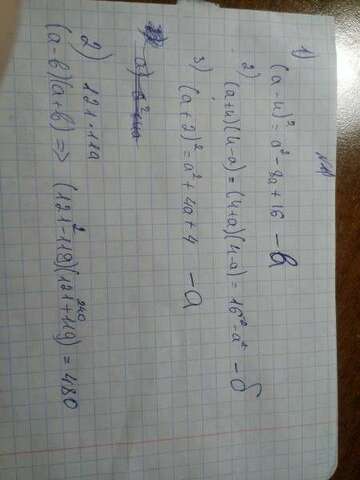 1) (a-4)² = a² - 8a + 16 - в
2) (a+4)(4-a) = (4+a)(4-a) = 16² - a² - б
3) (a+2)² = a² + 4a + 4 - а
2) 121·119
(a-в)(a+в) => (121-119)(121+119) = 480
2 240